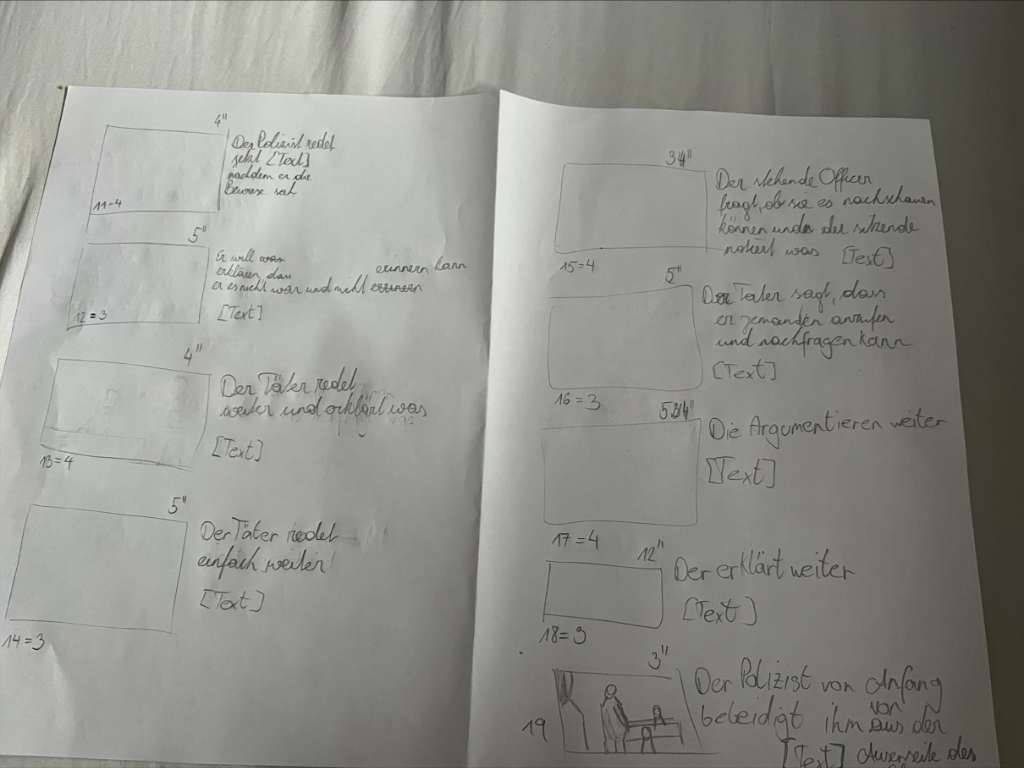 4"
Der Polizist redet
jetzt [Text]
nachdem er die
Beweise sah
11=4
5"
Er will was
erklären, das
erinnern kann
er es nicht war und nicht
[Text]
12=3
4"
Der Täter redet
weiter und erklärt was
[Text]
13=4
5"
Der Täter redet
einfach weiter
[Text]
14=3
34"
Der stehende Officer
fragt, ob sie es nachschauen
können und der sitzende
notiert was [Text]
15=4
5"
Der Täter sagt, dass
er jemanden anrufen
und nachfragen kann
[Text]
16=3
4"
Die Argumentieren weiter
[Text]
17=4
12"
Der erklärt weiter
[Text]
18=3
3"
Der Polizist von Anfang
von
beleidigt ihm aus der
19
[Text] des